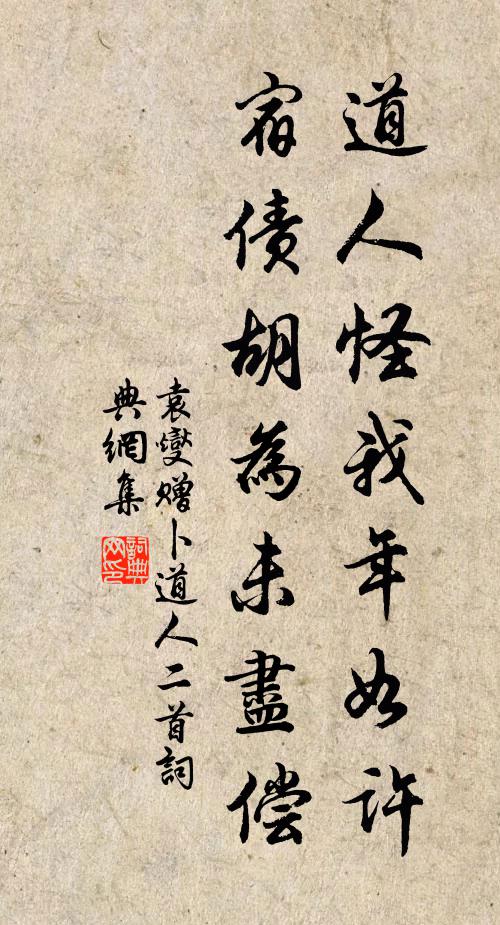 道人怪我年如许
宿债胡為未盡偿
袁燮赠卜道人二首詞
典網集
詞典
网印